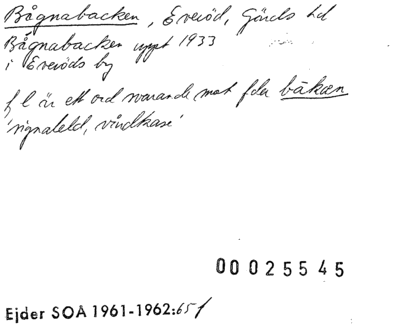 Bågnabacken, Everöd, Gärds hd
Bågnabacken uppt 1933
i Everöds by
f l är ett ord svarande mot fda bākæn
'signaleld, vårdkase'
00025545
Ejder SOA 1961-1962:65 f